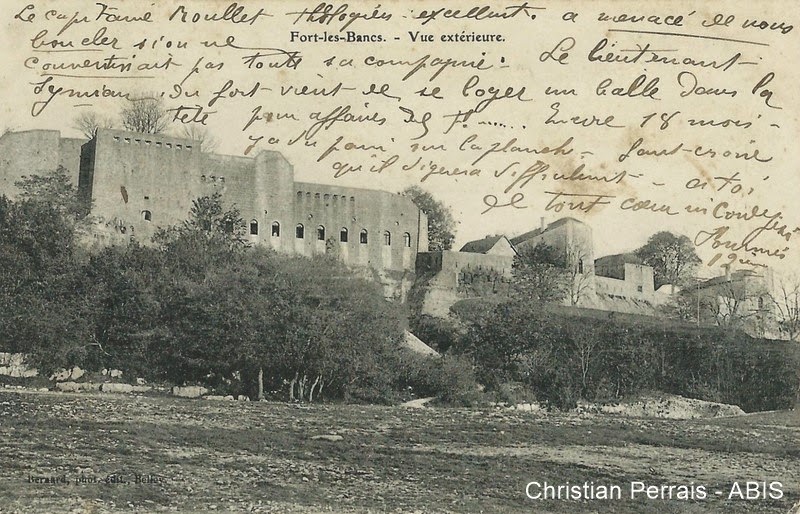 Le capitaine Roullet théologien excellent. a menacé de nous
Fort-les-Bancs. - Vue extérieure.
boucler si on ne
convertirait pas toute sa compagnie. Le lieutenant
du fort vient de se loger un balle dans la
tête pour affaires de f...... Encore 18 mois
du pain sur la planche faut croire
qu'il digérera difficilement a toi
de tout cœur
Bernard, phot. édit., Belley
Christian Perrais - ABIS